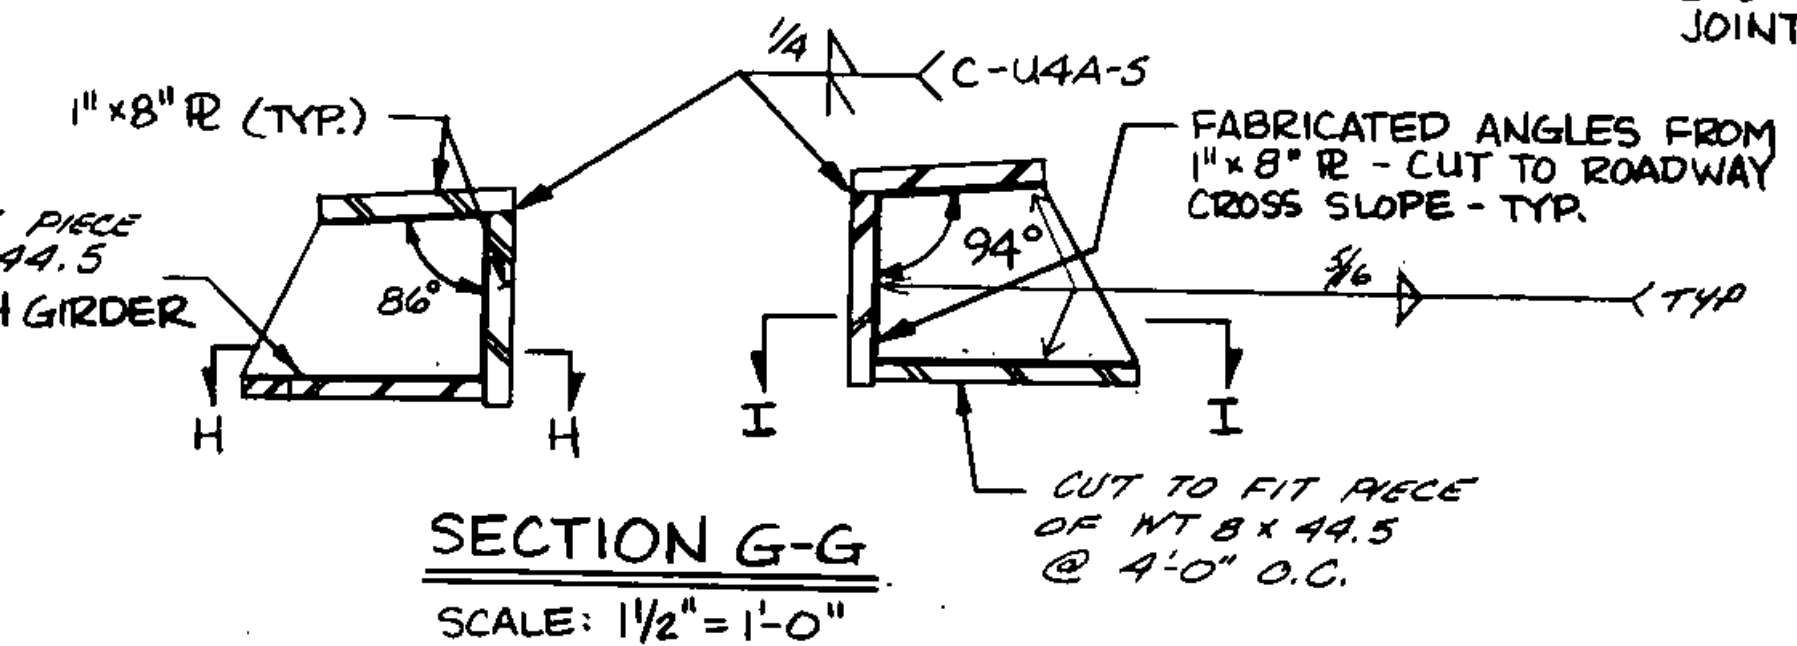 JOINT
1/4
C-U4A-S
1" x 8" PL (TYP.)
FABRICATED ANGLES FROM
1" x 8" PL - CUT TO ROADWAY
CROSS SLOPE - TYP.
PIECE
44.5
GIRDER
86°
94°
5/16
TYP
H
H
I
I
CUT TO FIT PIECE
OF WT 8 x 44.5
@ 4'-0" O.C.
SECTION G-G
SCALE: 1 1/2" = 1'-0"